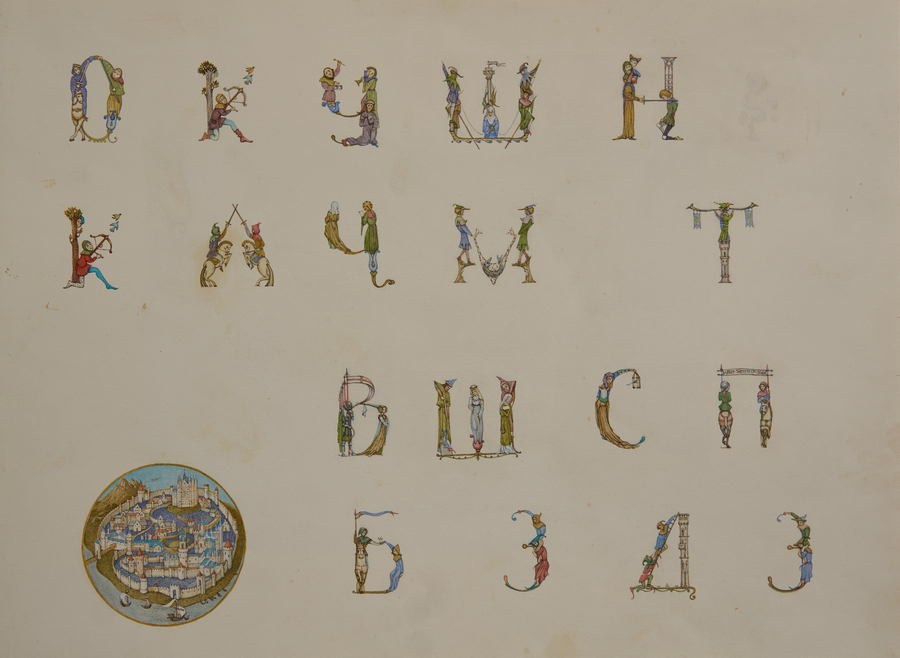 О К У Ш Н
К Л Ч М Т
В Ш С П
Б З Д З